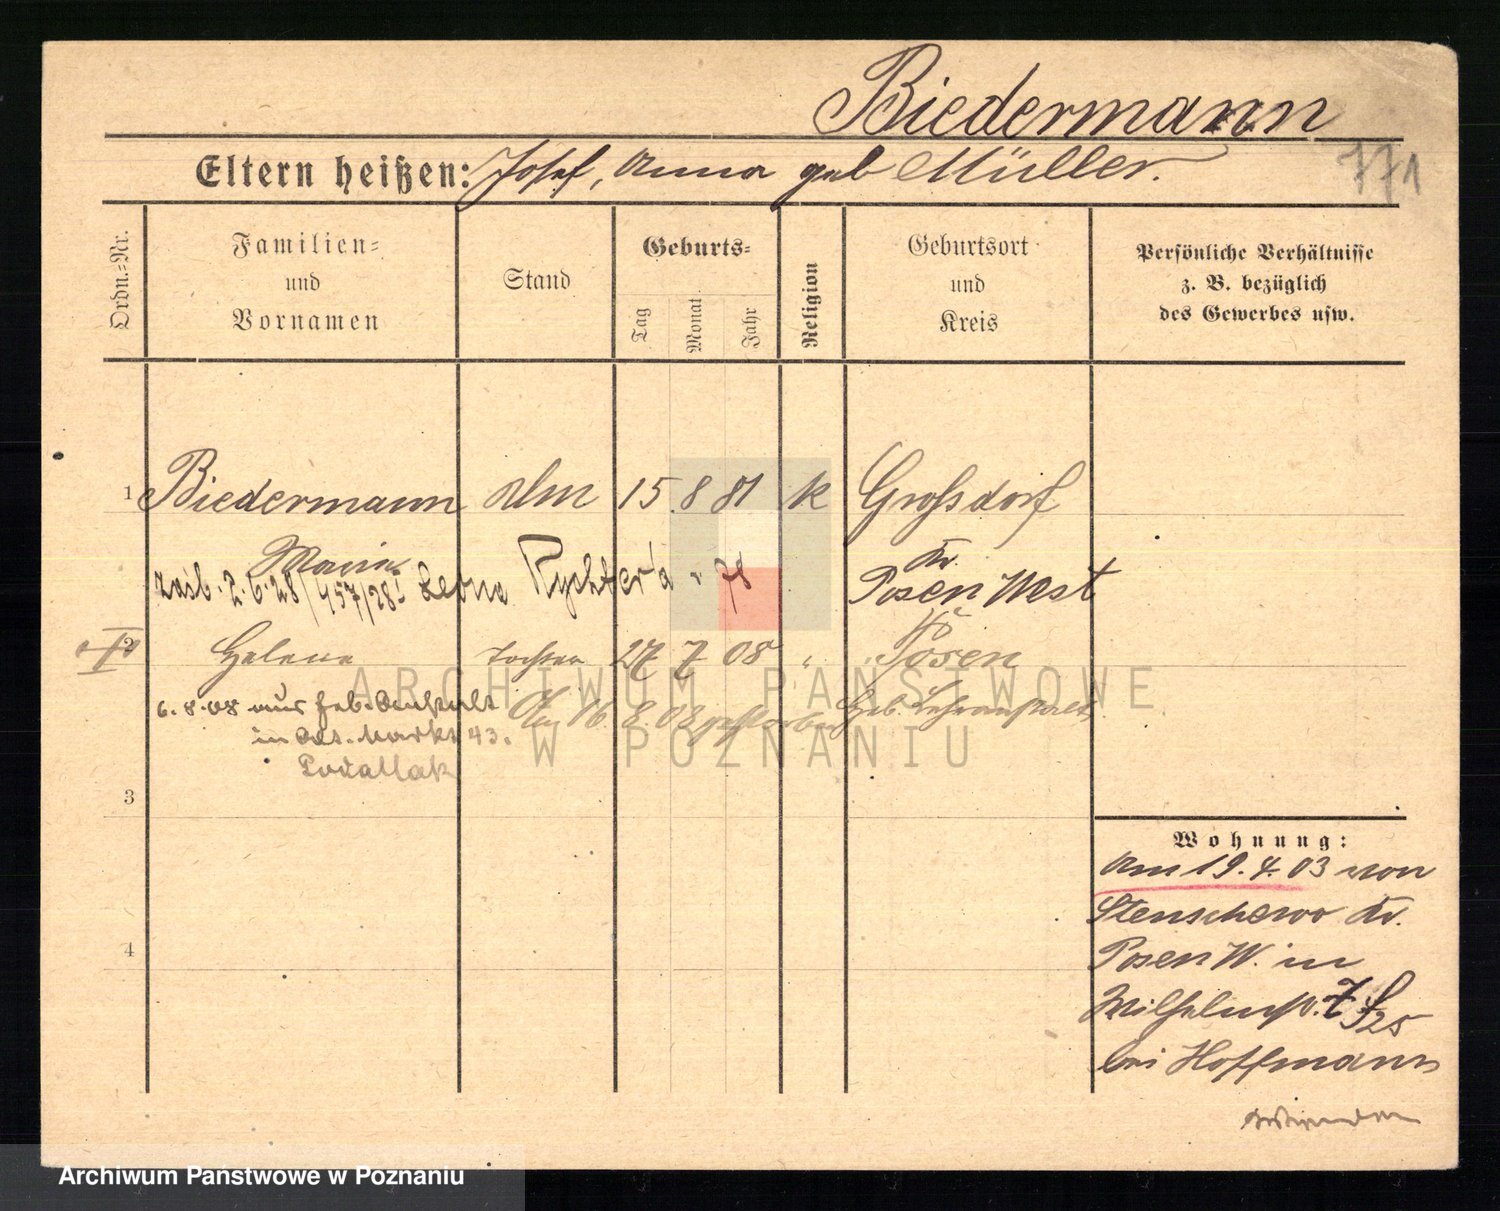 Biedermann
Eltern heißen: Josef, Anna geb Müller.
771
Ordn.-Nr.
Familien-
und
Vornamen
Stand
Geburts-
Tag
Monat
Jahr
Religion
Geburtsort
und
Kreis
Persönliche Verhältnisse
z. B. bezüglich
des Gewerbes usw.
1 Biedermann 15. 8 81 k Großdorf
Maria Kr.
2.6.28/457/28! Rychter'a Posen West
2 Helene Tochter 27 7 08 " Posen
6.8.08 aus
in
43.
3
4
Wohnung:
Am 19.4.03 von
Stenschewo Kr.
Posen W. in
Wilhelmstr. 7
bei Hoffmann
ARCHIWUM PAŃSTWOWE
W POZNANIU
Archiwum Państwowe w Poznaniu